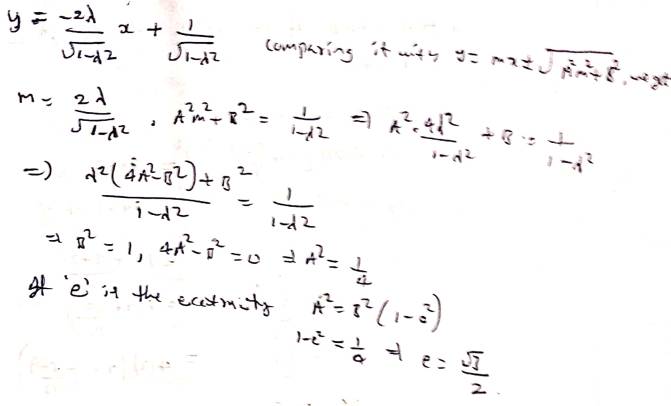 y = -2λ/√1-λ2 x + 1/√1-λ2 comparing it with y = mx ± √A²m²+B², we get
m = 2λ/√1-λ2, A²m²+B² = 1/1-λ2 ⇒ A²·4λ²/1-λ2 + B = 1/1-λ2
⇒) λ2(4A²-B²)+B²/1-λ2 = 1/1-λ2
⇒ B² = 1, 4A²-B² = 0 ⇒ A² = 1/4
If 'e' is the A² = B²(1-e²)
1-e² = 1/4 ⇒ e = √3/2.